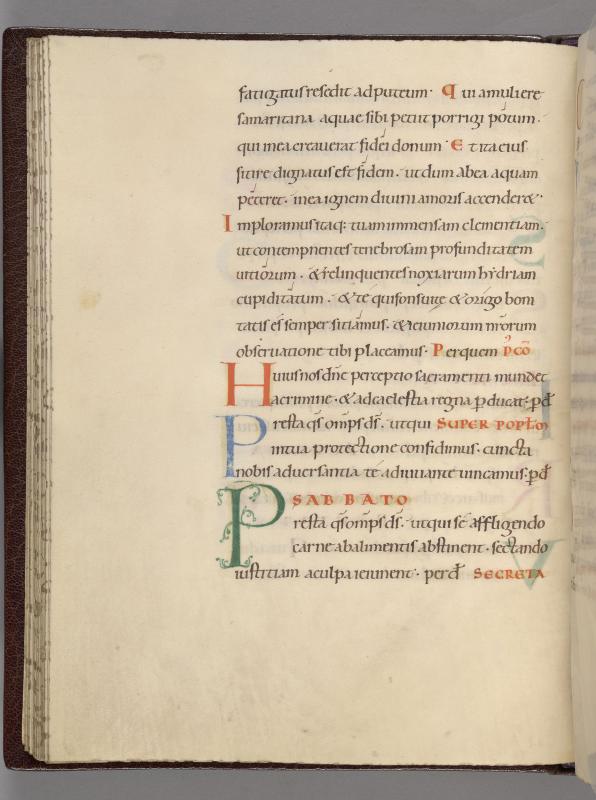 fatigatus resedit ad puteum. Qui a muliere
samaritana aquae sibi petiit porrigi potum.
qui in ea creaverat fidei donum. Et ita eius
sitire dignatus est fidem. ut dum ab ea aquam
peteret. in ea ignem divini amoris accenderet.
Imploramus itaq: tuam inmensam clementiam.
ut contempnentes tenebrosam profunditatem
vitiorum. & relinquentes noxiarum hydriam
cupiditatum. & te qui fons vite & origo boni
tatis es semper sitiamus. & ieiuniorum nrorum
observatione tibi placeamus. Per quem PCO
Huius nos dne perceptio sacramenti mundet
a crimine. & ad caelestia regna pducat. p d
Presta qs omps ds. ut qui SUPER POPLOM
in tua protectione confidimus. cuncta
nobis adversantia te adiuvante vincamus. p d
SABBATO
Presta qs omps ds. ut qui se affligendo
carne ab alimentis abstinent. sectando
iustitiam a culpa ieiunent. per d SECRETA